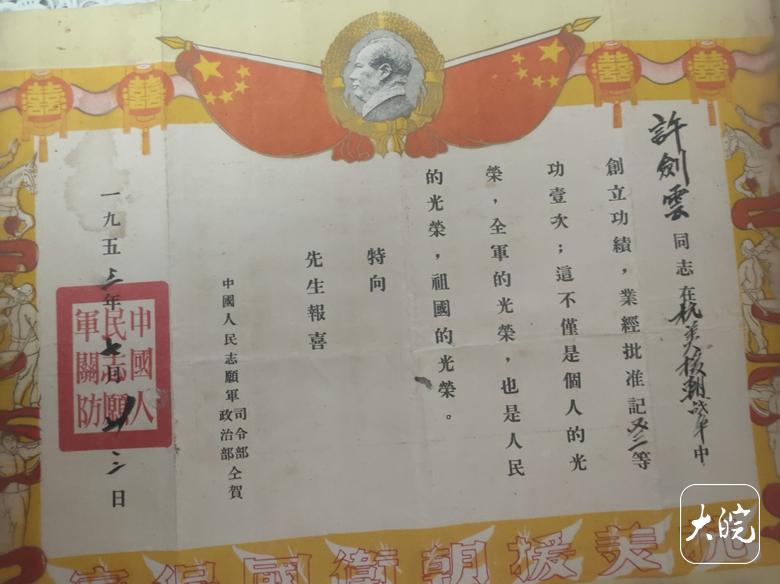 許劍雲同志在抗美援朝戰爭中
創立功績，業經批准記三等
功壹次；這不僅是個人的光
榮，全軍的光榮，也是人民
的光榮，祖國的光榮。
特向
先生報喜
中國人民志願軍司令部政治部仝賀
一九五三年七月廿二日
中國人民志願軍關防
抗美援朝衛國保家
囍
囍
囍
囍
大皖